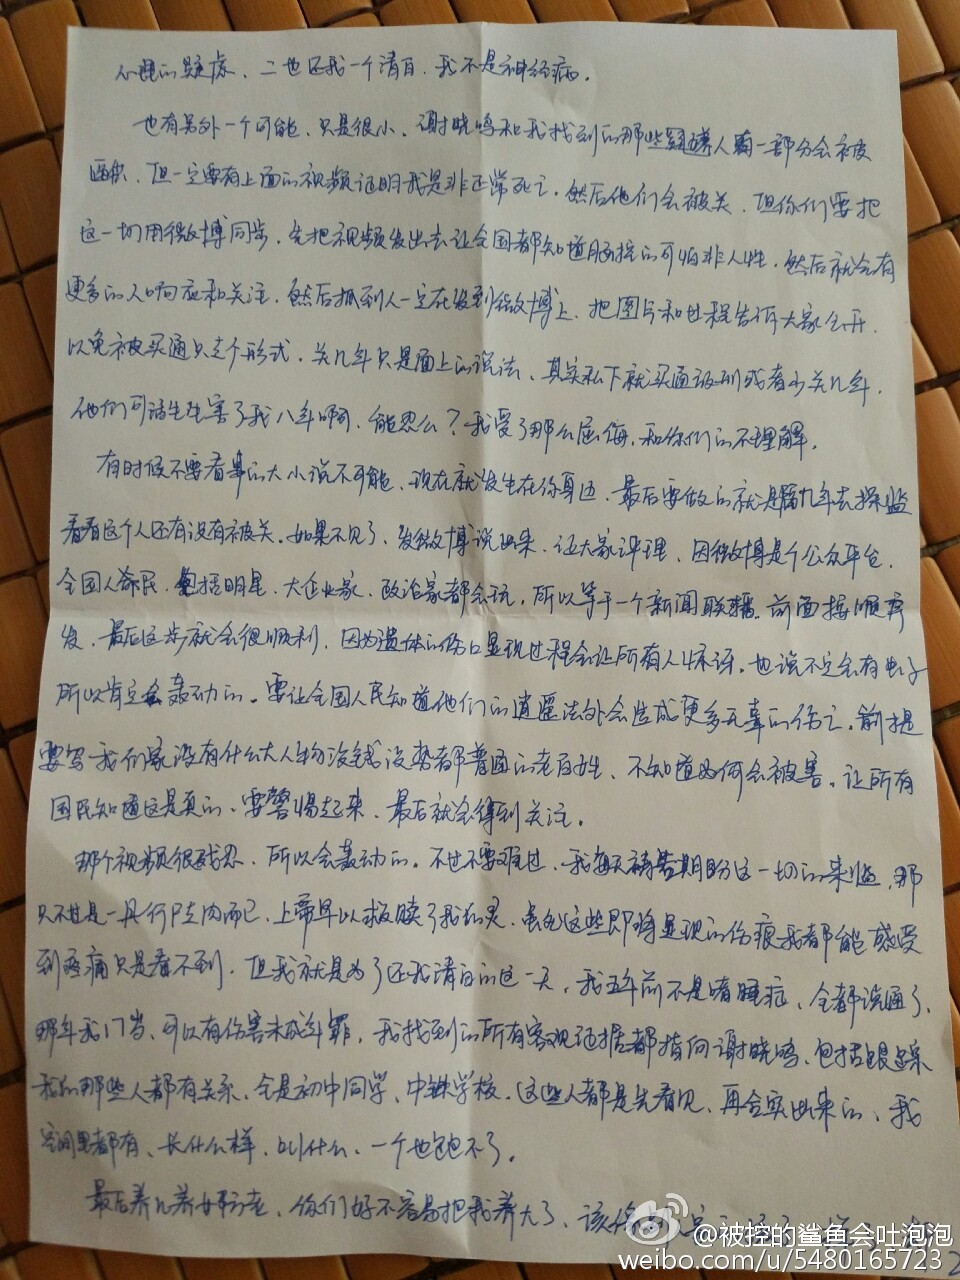 心理的疑虑、二也还我一个清白、我不是神经病。
也有另外一个可能、只是很小、谢晓鸣和我找到的那些嫌人有一部分会被
但一定要有上面的视频证明我是非正常死亡、然后他们会被关、但你们要把
这一切用微博同步、先把视频发出去让全国都知道脑控的可怕非人性、然后就会有
更多的人响应和关注、然后抓到人一定在发到微博上、把图片和过程告诉大家公开、
以免被买通只走个形式、关几年只是面上的说法、其实私下就买通减刑或者少关几年、
他们可活生生害了我八年啊、能忍么？我受了那么屈侮、和你们的不理解。
有时候不要看事的大小说不可能、现在就发生在你身边、最后要做的就是隔几年去探监
看看这个人还有没有被关、如果不见了、发微博说出来、让大家评理、因微博是个公众平台、
全国人命民、包括明星、大企业家、政治家都会玩、所以等于一个新闻联播、前面按顺序
发、最后这步就会很顺利、因为遗体的伤口显现过程会让所有人惊讶、也说不定会有电子
所以肯定会轰动的。要让全国人民知道他们的逍遥法外会造成更多无辜的伤亡、前提
要写我们家没有什么大人物没钱没势都普通的老百姓、不知道为何会被害、让所有
国民知道这是真的、要警惕起来、最后就会得到关注。
那个视频很残忍、所以会轰动的、不过不要难过、我每天祷告期盼这一切的来临、那
只不过是一具行尸走肉而已、上帝早以救赎了我的灵、虽然这些即将显现的伤痕我都能感受
到疼痛只是看不到、但我就是为了还我清白的这一天、我五年前不是嗜睡症、全都说通了、
那年我17岁、可以有伤害未成年罪、我找到的所有客观证据都指向谢晓鸣、包括跟踪
我的那些人都有关系、全是初中同学、中铁学校、这些人都是先看见、再会实出来的、我
空间里都有、长什么样、叫什么、一个也跑不了。
最后养儿养女防老、你们好不容易把我养大了、该
@被控的鲨鱼会吐泡泡
weibo.com/u/5480165723
2